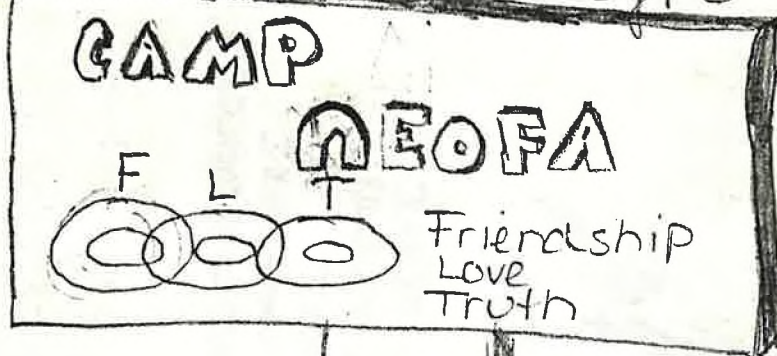 CAMP
NEOFA
F L T
Friendship
Love
Truth